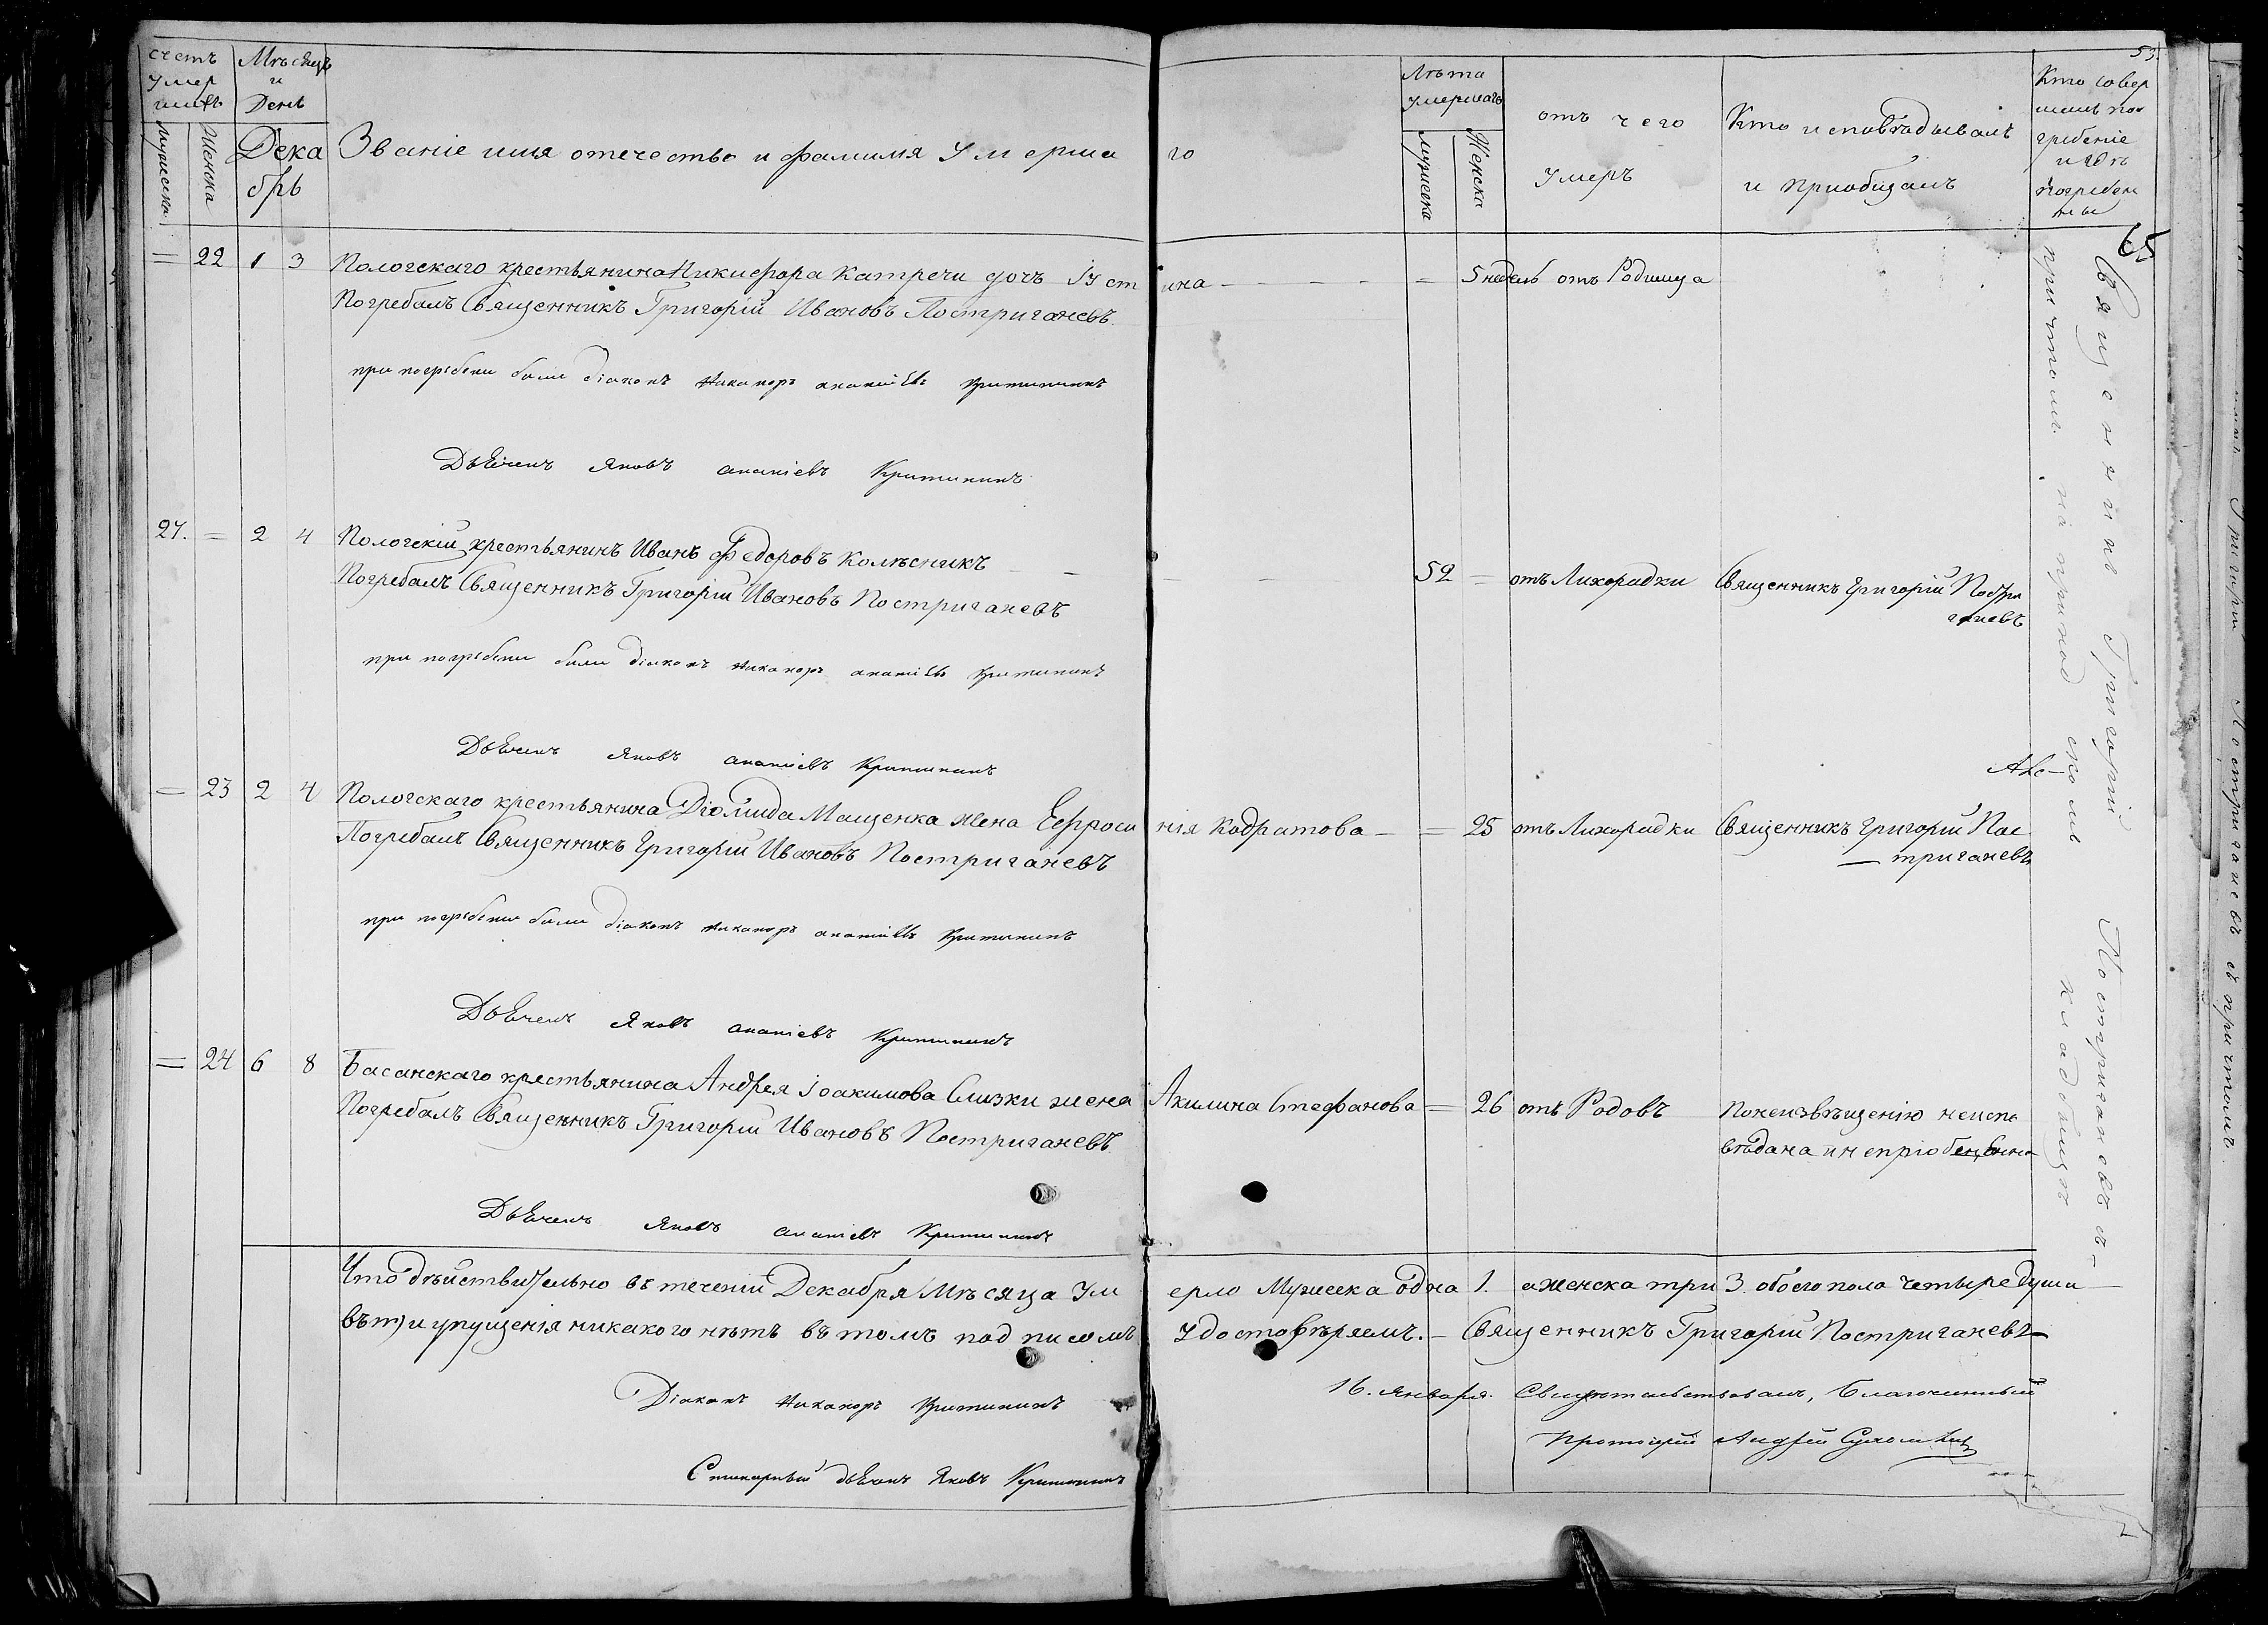 53.
65
счетъ
умер
шихъ
Мужеска
Женска
Мѣсяцъ
и
День
Дека
брь
Званіе имя отечество и фамилія Умерша го
Лѣта
умершагъ
Мужеска
Женска
отъ чего
умеръ
Кто исповѣдывалъ
и приобщалъ
Кто совер
шилъ пог
ребеніе
и гдѣ
погребе
ны
= 22 1 3 Пологскаго крестьянина Никифора Катречи дочъ Іуст ина - - - - = 5 недель отъ Родимца
Погребалъ Священникъ Григорій Ивановъ Постриганевъ
при погребени были діаконъ Никаноръ ананіевъ Критининъ
Дьячекъ Яковъ ананіевъ Критининъ
27. = 2 4 Пологскій крестьянинъ Иванъ Федоровъ Колѣсникъ - - - 52 = отъ Лихорадки Священникъ Григорій Постри
ганевъ
Погребалъ Священникъ Григорій Ивановъ Постриганевъ
при погребени были діаконъ Никаноръ ананіевъ Критининъ
Дьячекъ Яковъ ананіевъ Критининъ
= 23 2 4 Пологскаго крестьянина Діомида Мащенка жена Евфроси нія Кодратова - = 25 отъ Лихорадки Священникъ Григорій Пос
триганевъ
Погребалъ Священникъ Григорій Ивановъ Постриганевъ
при погребени были діаконъ Никаноръ ананіевъ Критининъ
Дьячекъ Яковъ ананіевъ Критининъ
= 24 6 8 Басанскаго крестьянина Андрея Іоакимова Слизки жена Акилина Стефанова = 26 отъ Родовъ Понеизвѣщенію неиспо
вѣдана и неприобещенна
Погребалъ Священникъ Григорій Ивановъ Постриганевъ
Дьячекъ Яковъ ананіевъ Критининъ
Священникъ Григорій Постриганевъ съ
причтомъ на приходскомъ кладбищѣ
Что дѣйствительно въ теченіи Декабря Мѣсяца Ум ерло Мужеска одна 1. а женска три 3. обоего пола четыре души
и упущенія никакого нѣтъ въ томъ подписомъ удостовѣряемъ. - Священникъ Григорій Постриганевъ
Діаконъ Никаноръ Критининъ
16. Января. Свидетельствовалъ, Благочинный
Протоіерей Андрей
дьячокъ Яковъ Критининъ